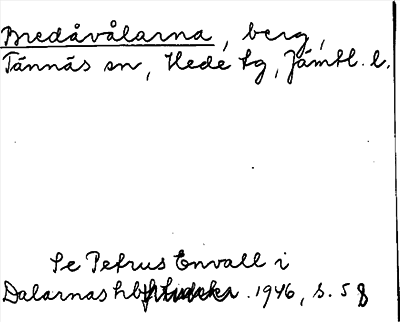 Bredåvålarna, berg,
Tännäs sn, Hede tg, Jämtl. l.
Se Petrus Envall i
Dalarnas hb 1946, s. 58